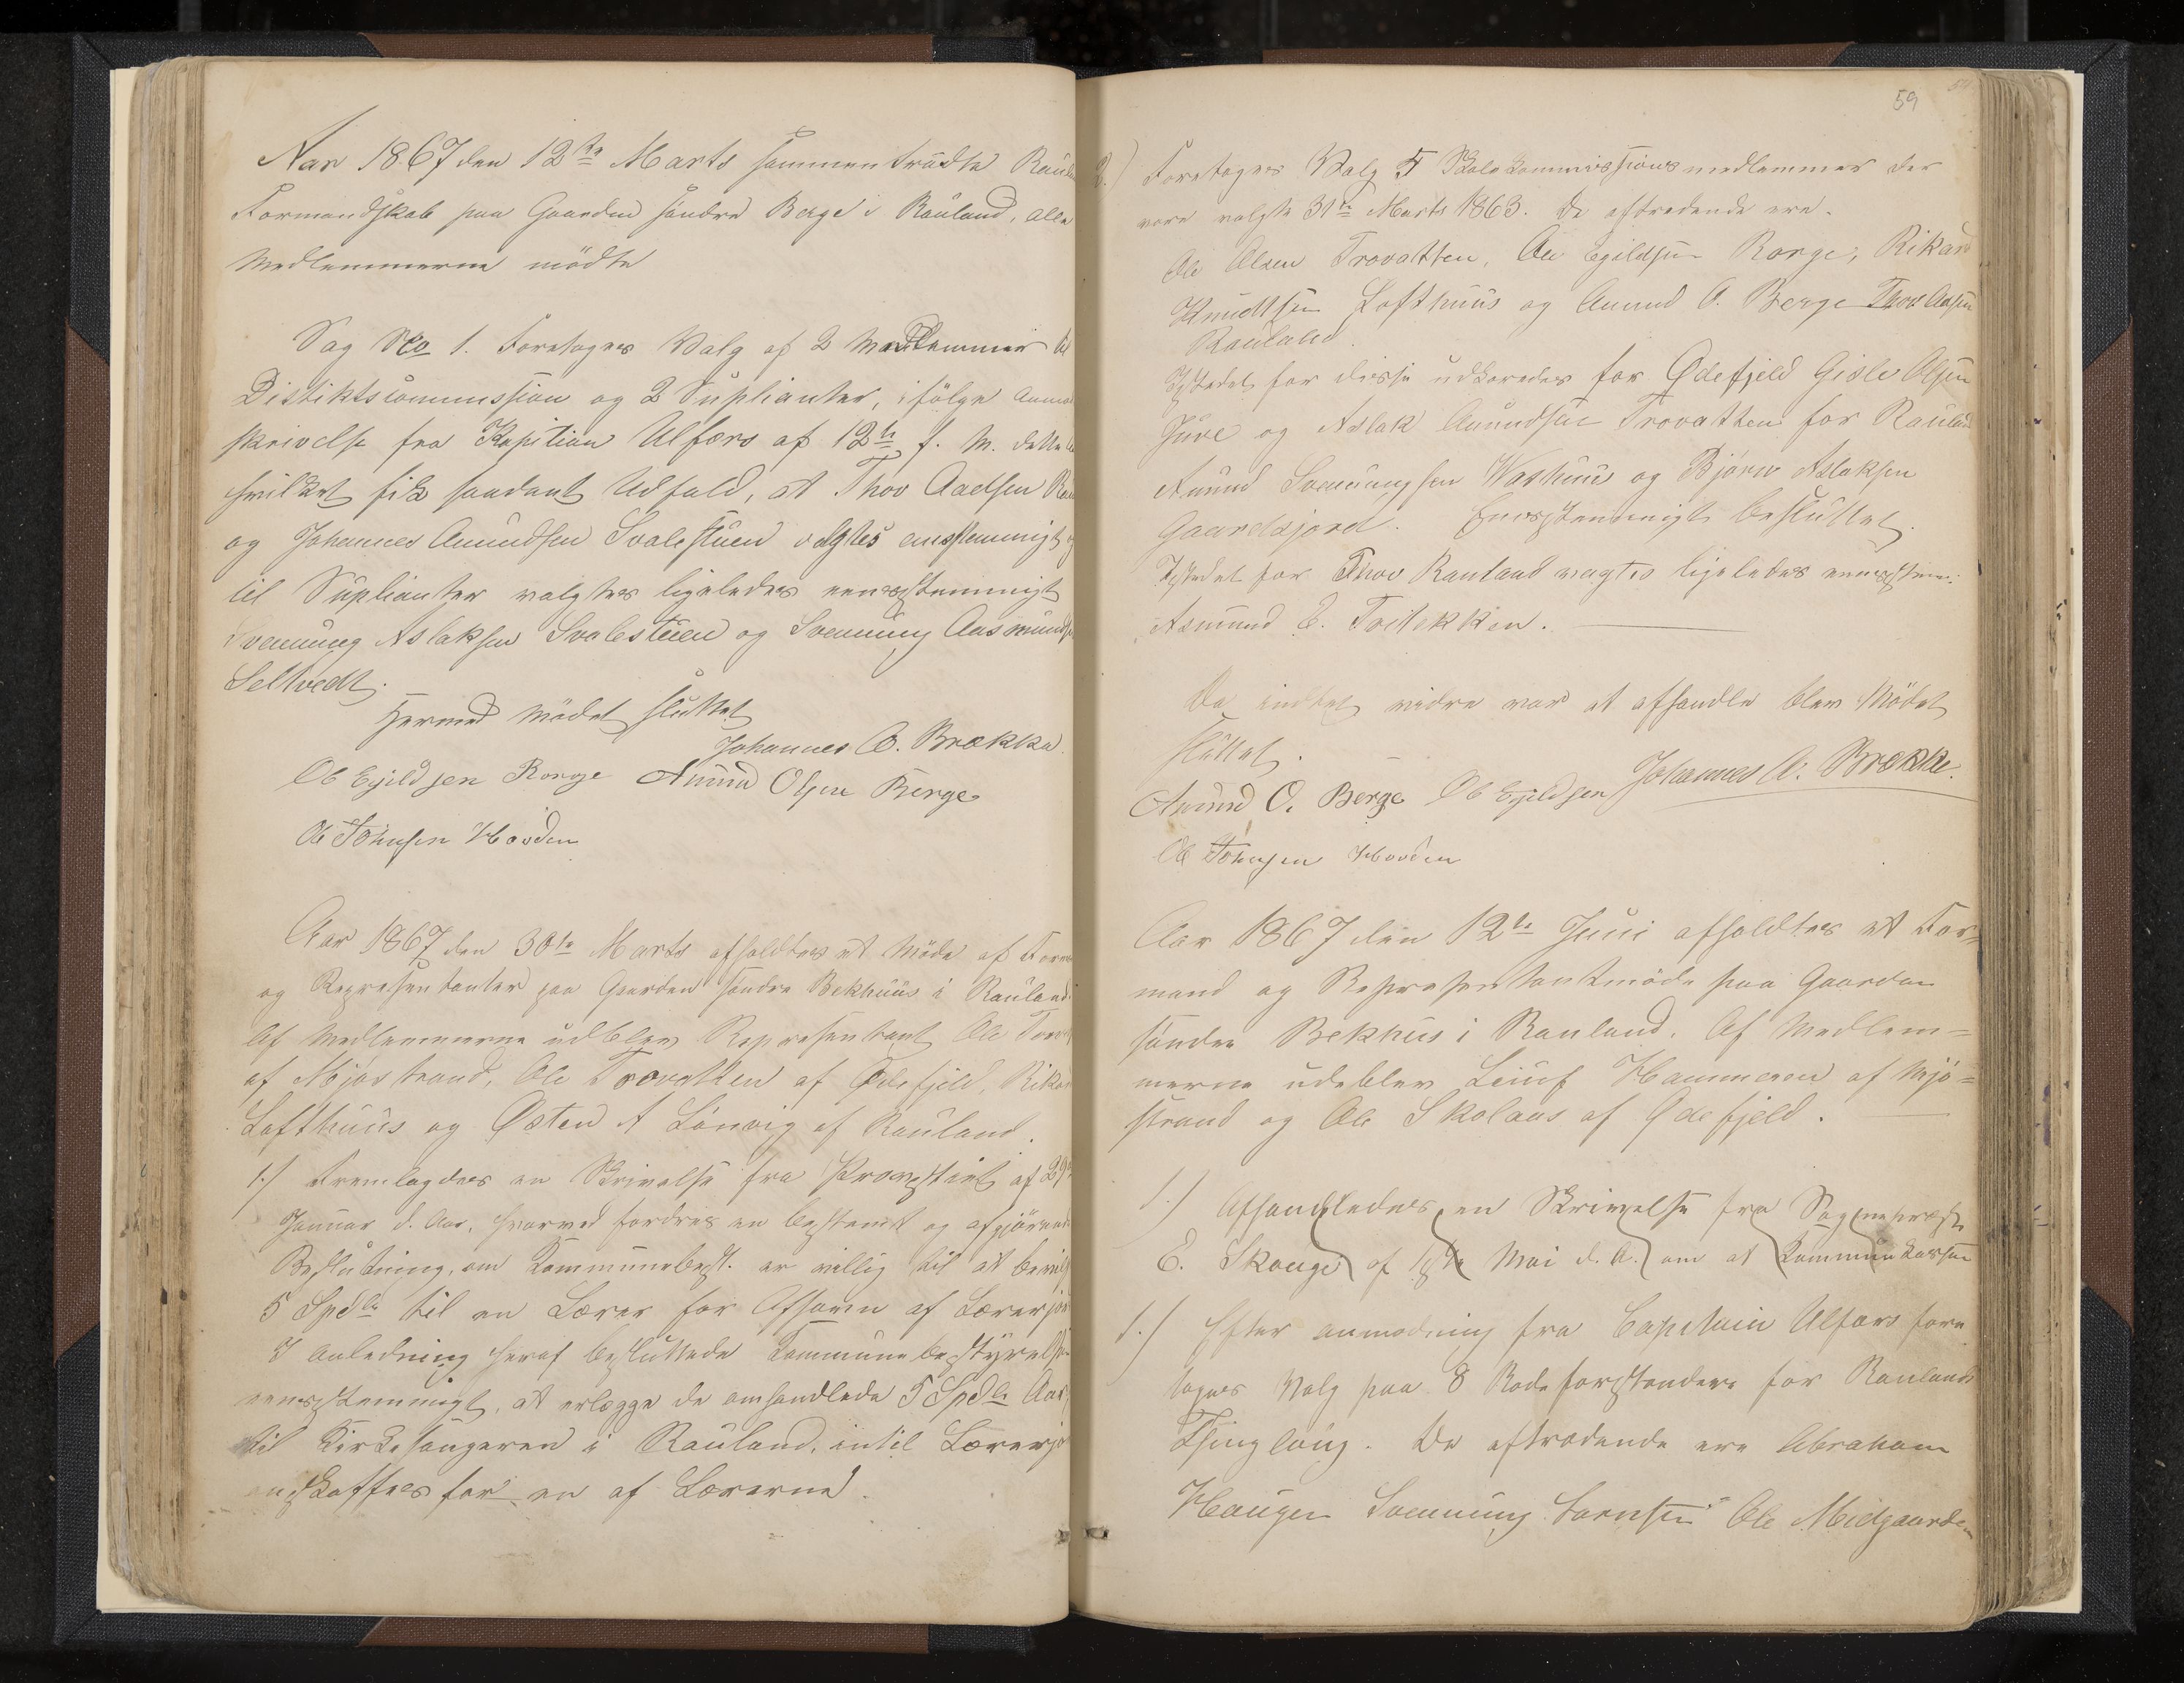 Aar 1867 den 12te Marts sammentraadte Raul
Formandskab paa Gaarden söndre Berge i Rauland, alle
Medlemmerne mödte
Sag No 1. Foretoges Valg af 2 Medlemmer til
Distiktscommission og 2 Suplianter, ifölge Anmo
skrivelse fra Kapitian Ulfærs af 12te f. M. dette
hvilket fik saadant Udfald, at Thov Aadsen Rau
og Johannes Amundsen Svalestuen valgtes eensstemmigt og
til Suplianter valgtes ligeledes eensstemmigt
Svenung Aslaksen Svalestuen og Svenung Aasmunds
Seltvedt.
Hermed Mödet sluttet
Johannes A. Brækka.
Ole Egildsen Rorge Amund Olsen Berge
Ole Johnsen Hovden
Aar 1867 den 30te Marts afholdtes et Möde af Form
og Repræsentanter paa Gaarden söndre Bekhuus i Rauland.
Af Medlemmerne udeblev Repræsentant Ole
af Mjöstrand, Ole Trovatten af Ødefjeld, Rikar
Lofthuus og Østen A Lönvig af Rauland.
1./ Fremlagdes en Skrivelse fra Provstiet af 29
Januar d. Aar, hvorved fordres en bestemt og afgjörende
Beslutning, om Kommunebest. er villig til at bevilge
5 Spdlr til en Lærer for Afsavn af Lærerjor
I Anledning heraf besluttede Kommunebestyrelsen
eensstemmigt, at erlægge de omhandlede 5 Spdlr Aar,
til Kirkesangeren i Rauland, intil Lærerjo
anskaffes for en af Lærerne.
59
2./ Foretoges Valg 5 Skolekommissionsmedlemmer der
vare valgte 31te Marts 1863. De aftrædende ere.
Ole Olsen Trovatten, Ole Egildsen Rorge, Rikard
Knudtsen Lofthuus og Amund O. Berge Thov Aasen
Rauland.
Istedet for disse udkaaredes for Ødefjeld Gisle Olsen
Juve og Aslak Amundsen Trovatten for Rauland
Amund Svenungsen Vashuus og Björn Aslaksen
Gaardsjord. Eensstemmigt besluttet.
Istedet for Thov Rauland vagtes ligeledes eensstem:
Asmund E. Tveitekkin.
Da indtet vidre var at afhandle blev Mödet
sluttet.
Johannes A. Brække.
Amund O. Berge Ole Egildsen
Ole Johnsen Hovden
Aar 1867 den 12te Juni afholdtes et For-
mand og Repræsentantmöde paa Gaarden
söndre Bekhus i Rauland. Af Medlem=
merne udeblev Leiuf Hammeren af Mjö=
strand og Ole Skolaas af Ødefjeld.
1./ Afhandledes en Skrivelse fra Sognepræst
E. Skouge af 1ste Mai d. A. om at Kommunekassen
1./ Efter anmodning fra Capitain Ulfærs fore
toges Valg paa 8 Rodeforstandere for Raulands
Thinglaug. De aftrædende ere Abraham
Haugen Svenung Ole Midgaarden